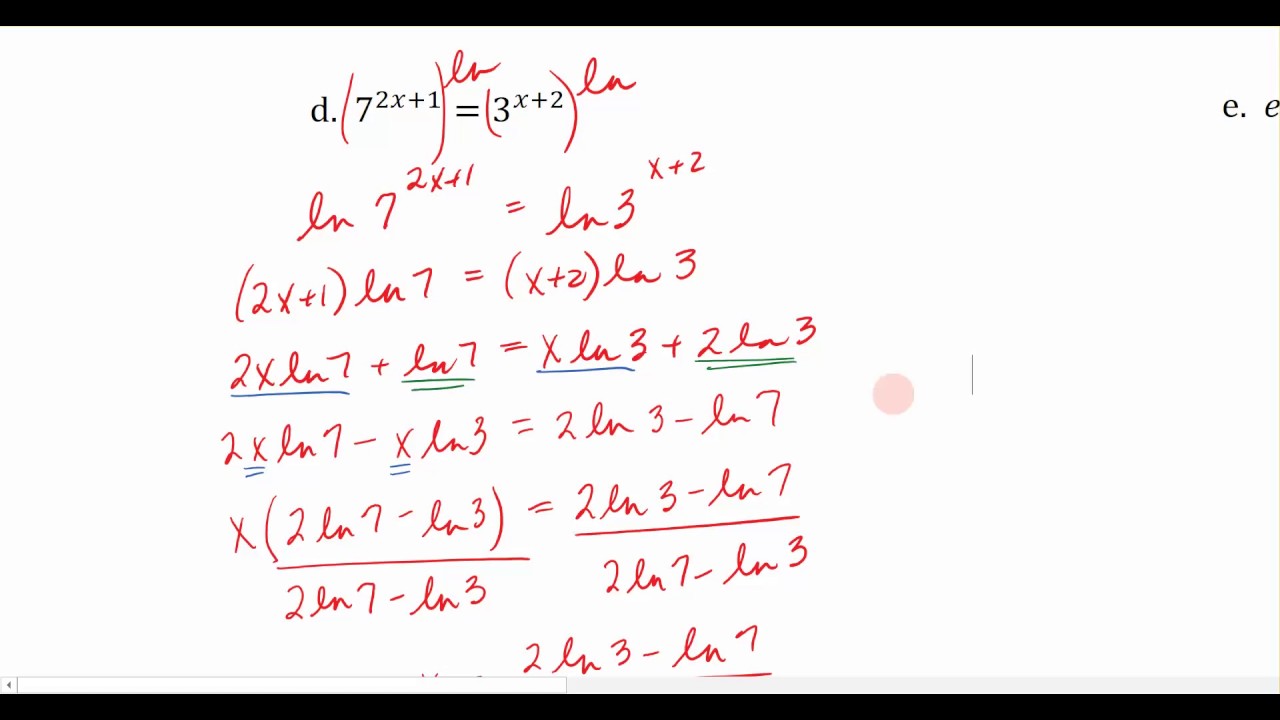 d. (7^{2x+1})^{ln} = (3^{x+2})^{ln}
e. e
ln 7^{2x+1} = ln 3^{x+2}
(2x+1) ln 7 = (x+2) ln 3
2x ln 7 + ln 7 = x ln 3 + 2 ln 3
2x ln 7 - x ln 3 = 2 ln 3 - ln 7
x (2 ln 7 - ln 3) = 2 ln 3 - ln 7
2 ln 7 - ln 3 2 ln 7 - ln 3
2 ln 3 - ln 7